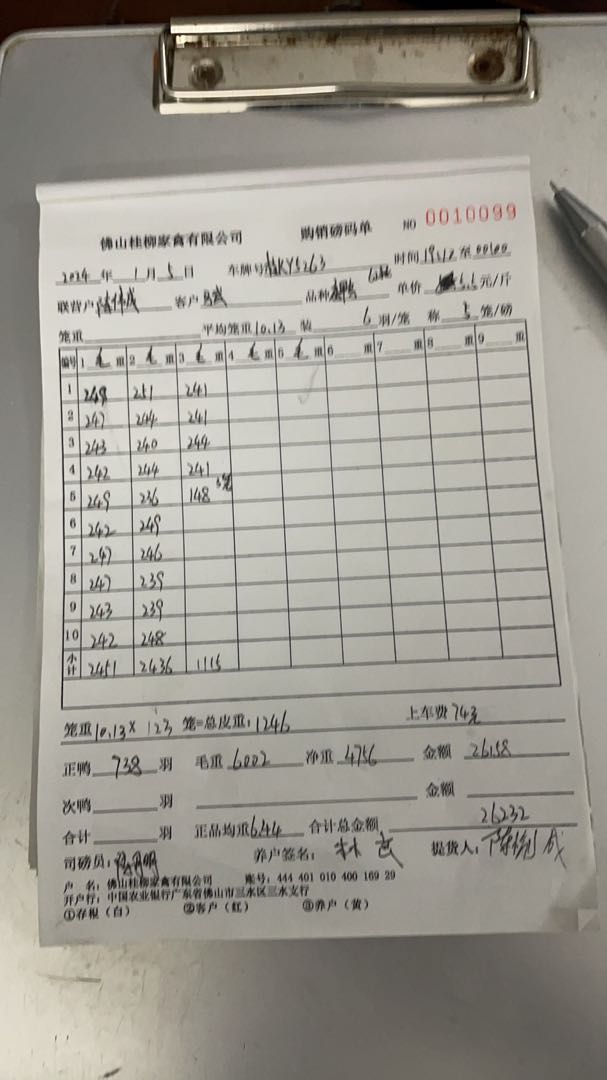 佛山桂柳家禽有限公司 购销磅码单 NO 0010099
2024 年 1 月 5 日 车牌号 KY5263 时间 19:12 至 00:00
联营户 陈伟成 客户 品种 单价 5.5 元/斤
笼重 平均笼重 10.13 装 6 羽/笼 称 5 笼/磅
编号 1 毛 重 2 毛 重 3 毛 重 4 毛 重 5 毛 重 6 重 7 重 8 重 9 重
1 249 251 241
2 247 244 241
3 243 240 244
4 242 244 241
5 249 236 148 3笼
6 242 249
7 247 246
8 247 239
9 243 239
10 242 248
小计 2451 2436 1115
笼重 10.13 × 123 笼=总皮重: 1246 上车费 74元
正鸭 738 羽 毛重 6002 净重 4756 金额 26158
次鸭 羽 金额
合计 羽 正品均重 6.44 合计总金额 26232
司磅员: 养户签名: 提货人:
户 名: 佛山桂柳家禽有限公司 账号: 444 401 010 400 169 29
开户行: 中国农业银行广东省佛山市三水区三水支行
①存根(白) ②客户(红) ③养户(黄)